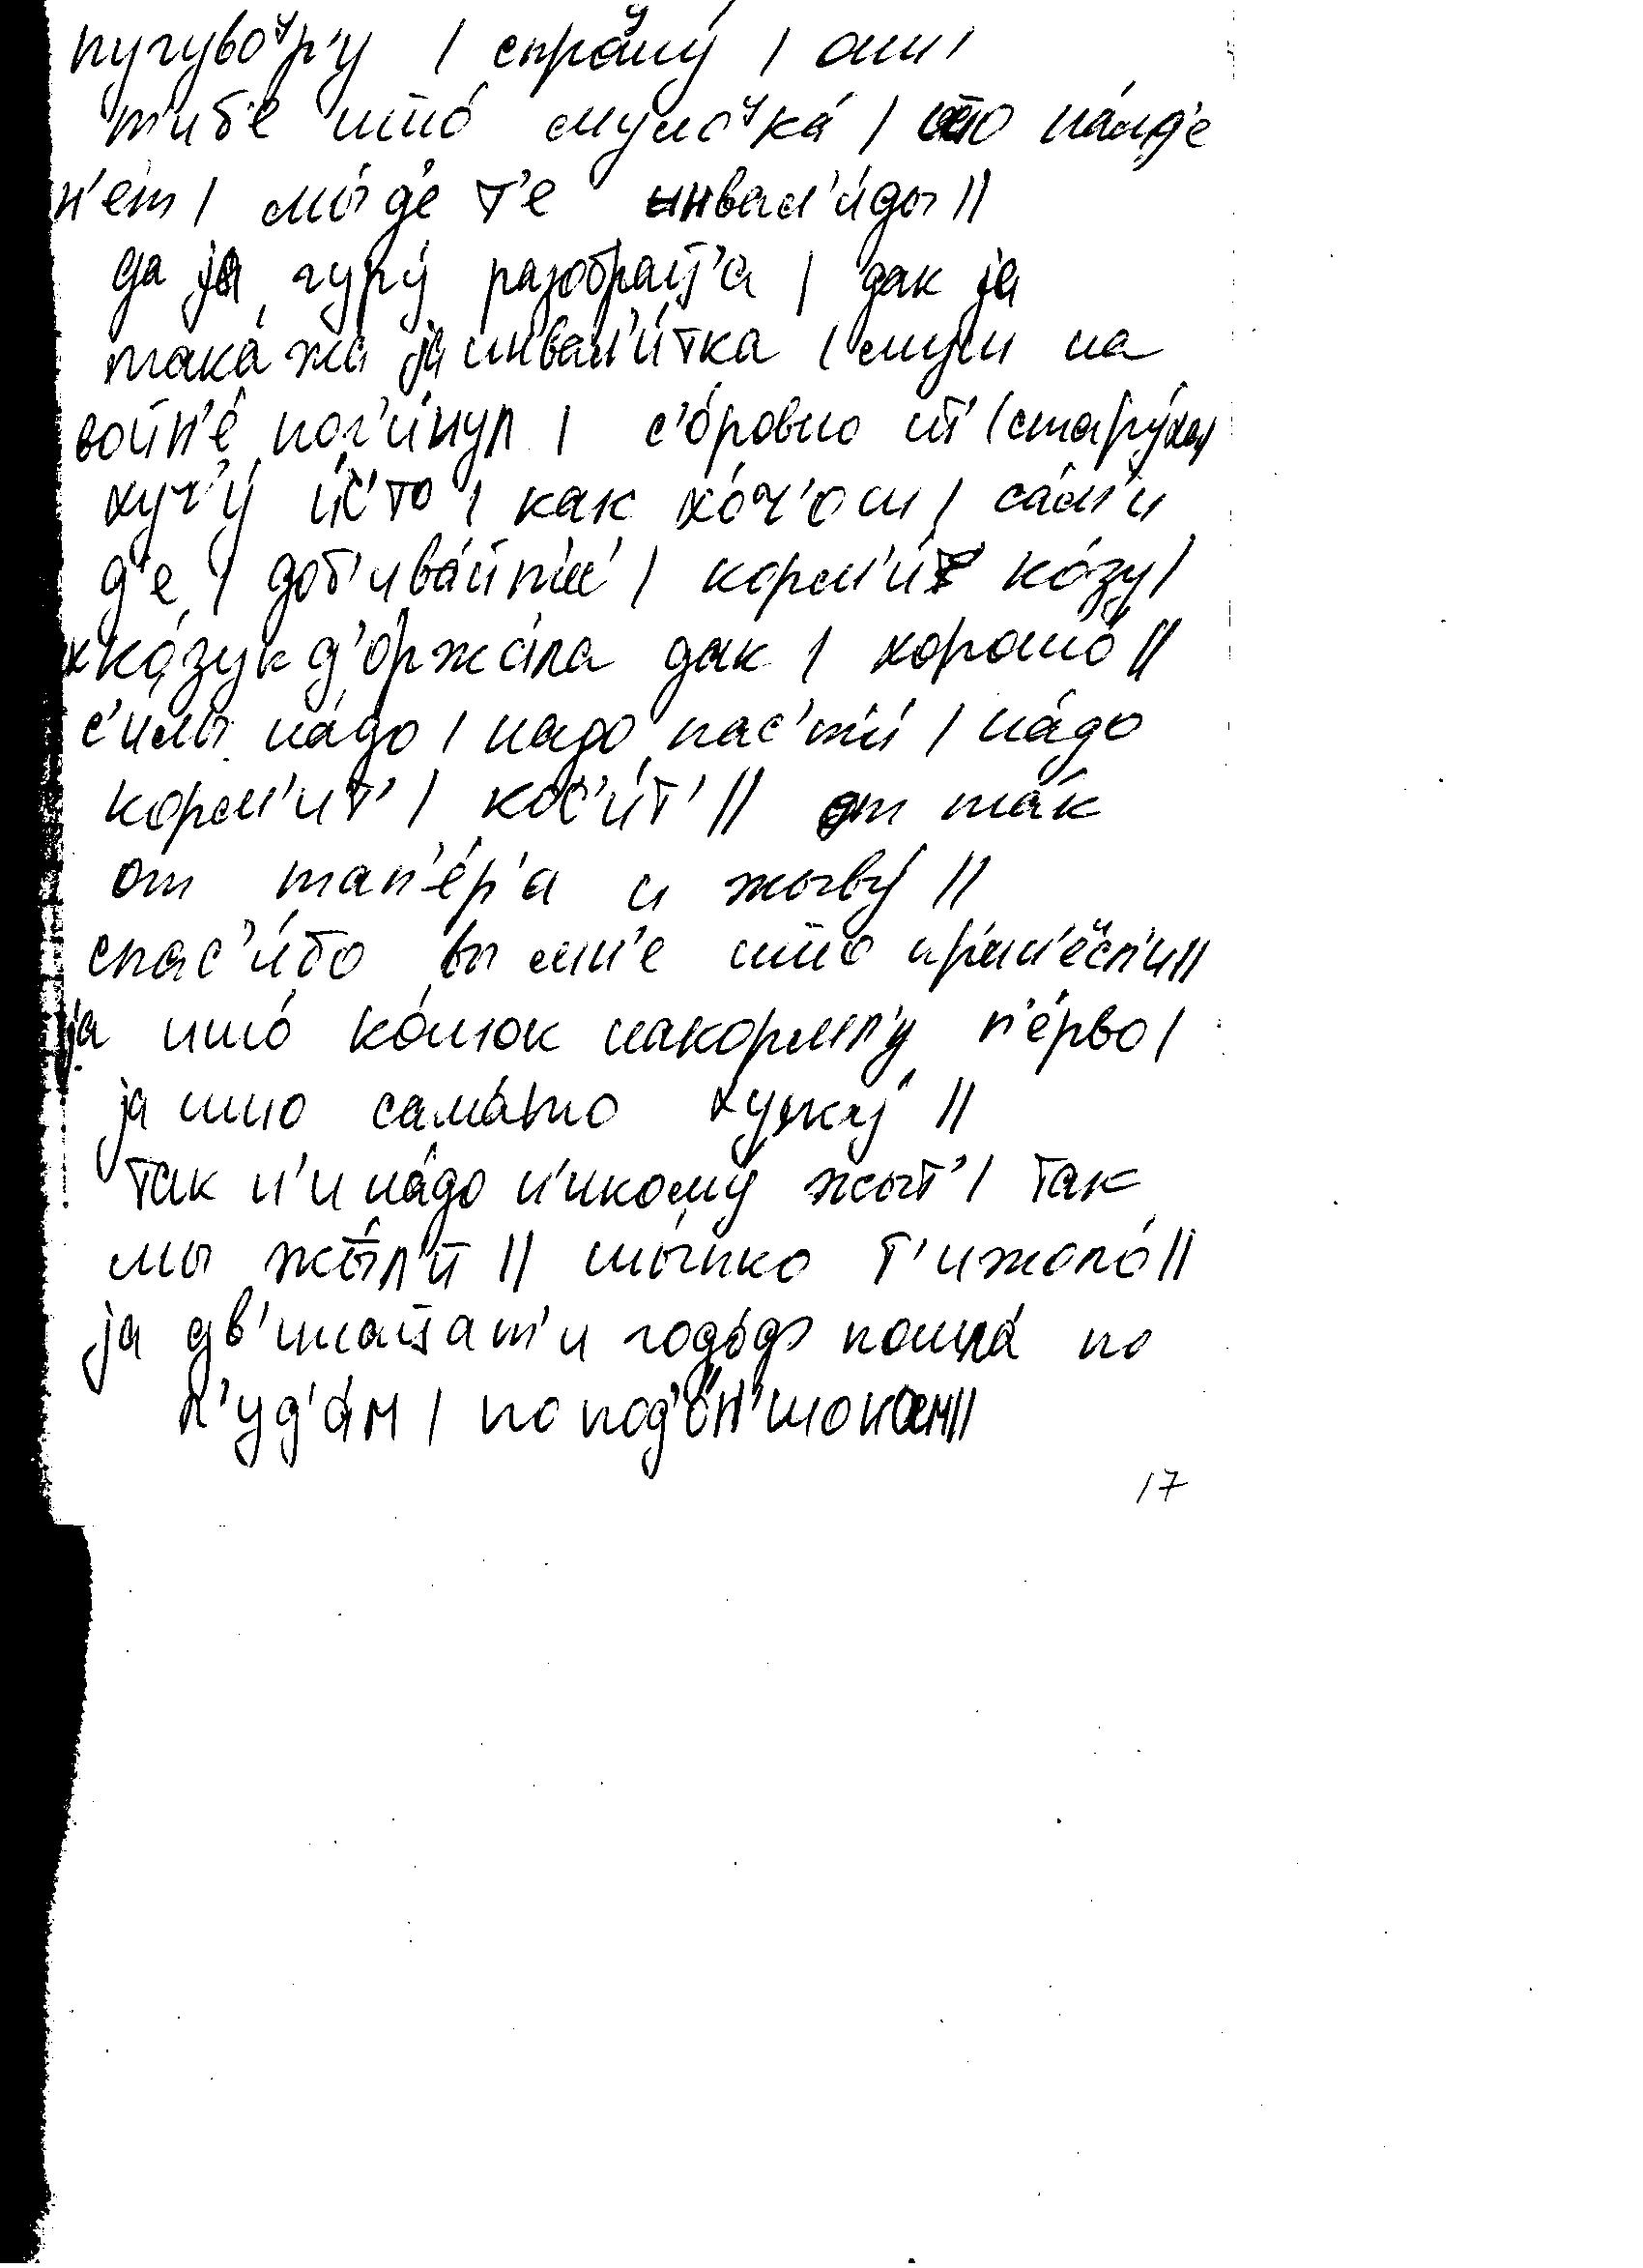 пугувоʸр'у | спрашу́ | ош |
т'иб'е што́ мулоʸка́ | што на́мд'е
н'е́т | мы́ д'е т'е инвал'и́ды ||
да jа гур'у́ разобрац'а | дак jа
така́ жа jа инвал'и́тка | муш на
войн'е́ пог'и́нул | с'о́ровно ит' | стару́ха |
хуч'у́ и́с'т'о | как хо́ч'ош | са́м'и
д'е | доб'ива́йт'ис' | корм'и́т ко́зу |
ко́зу д'оржа́ла дак | хорошо́ ||
с'и́лы на́до | надо пас'т'и́ | на́до
корм'ит' | кос'и́т' || от та́к
от тап'е́р'а и жыву́ ||
спас'и́бо вы мн'е што пр'ин'ёсл'и ||
jа ишо́ ко́шок накормл'у п'е́рво |
jа што сама́то ху́жжу ||
так н'и на́до н'икому́ жыт' | так
мы жы́л'и || шы́пко т'ижоло́ ||
jа дв'инацат'и годо́ф пошла́ по
л'уд'а́м | по под'о́н'шокам ||
17